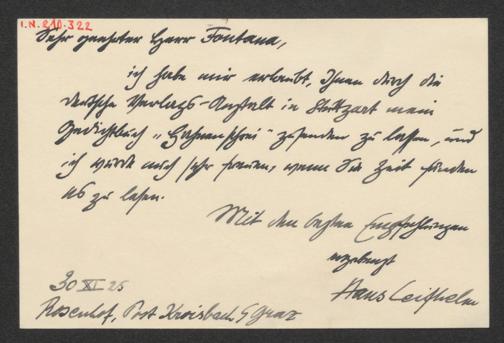 I.N. 210.322
Sehr geehrter Herr Fontana,
ich habe mir erlaubt, Ihnen durch die
deutsche Verlags-Anstalt in Stuttgart mein
Gedichtbuch „Hahnenschrei" zusenden zu lassen, und
ich würde mich sehr freuen, wenn Sie Zeit fänden
es zu lesen.
Mit den besten Empfehlungen
ergebenst
Hans Leifhelm
30 XI 25
Rosenhof, Post Kroisbach b/ Graz